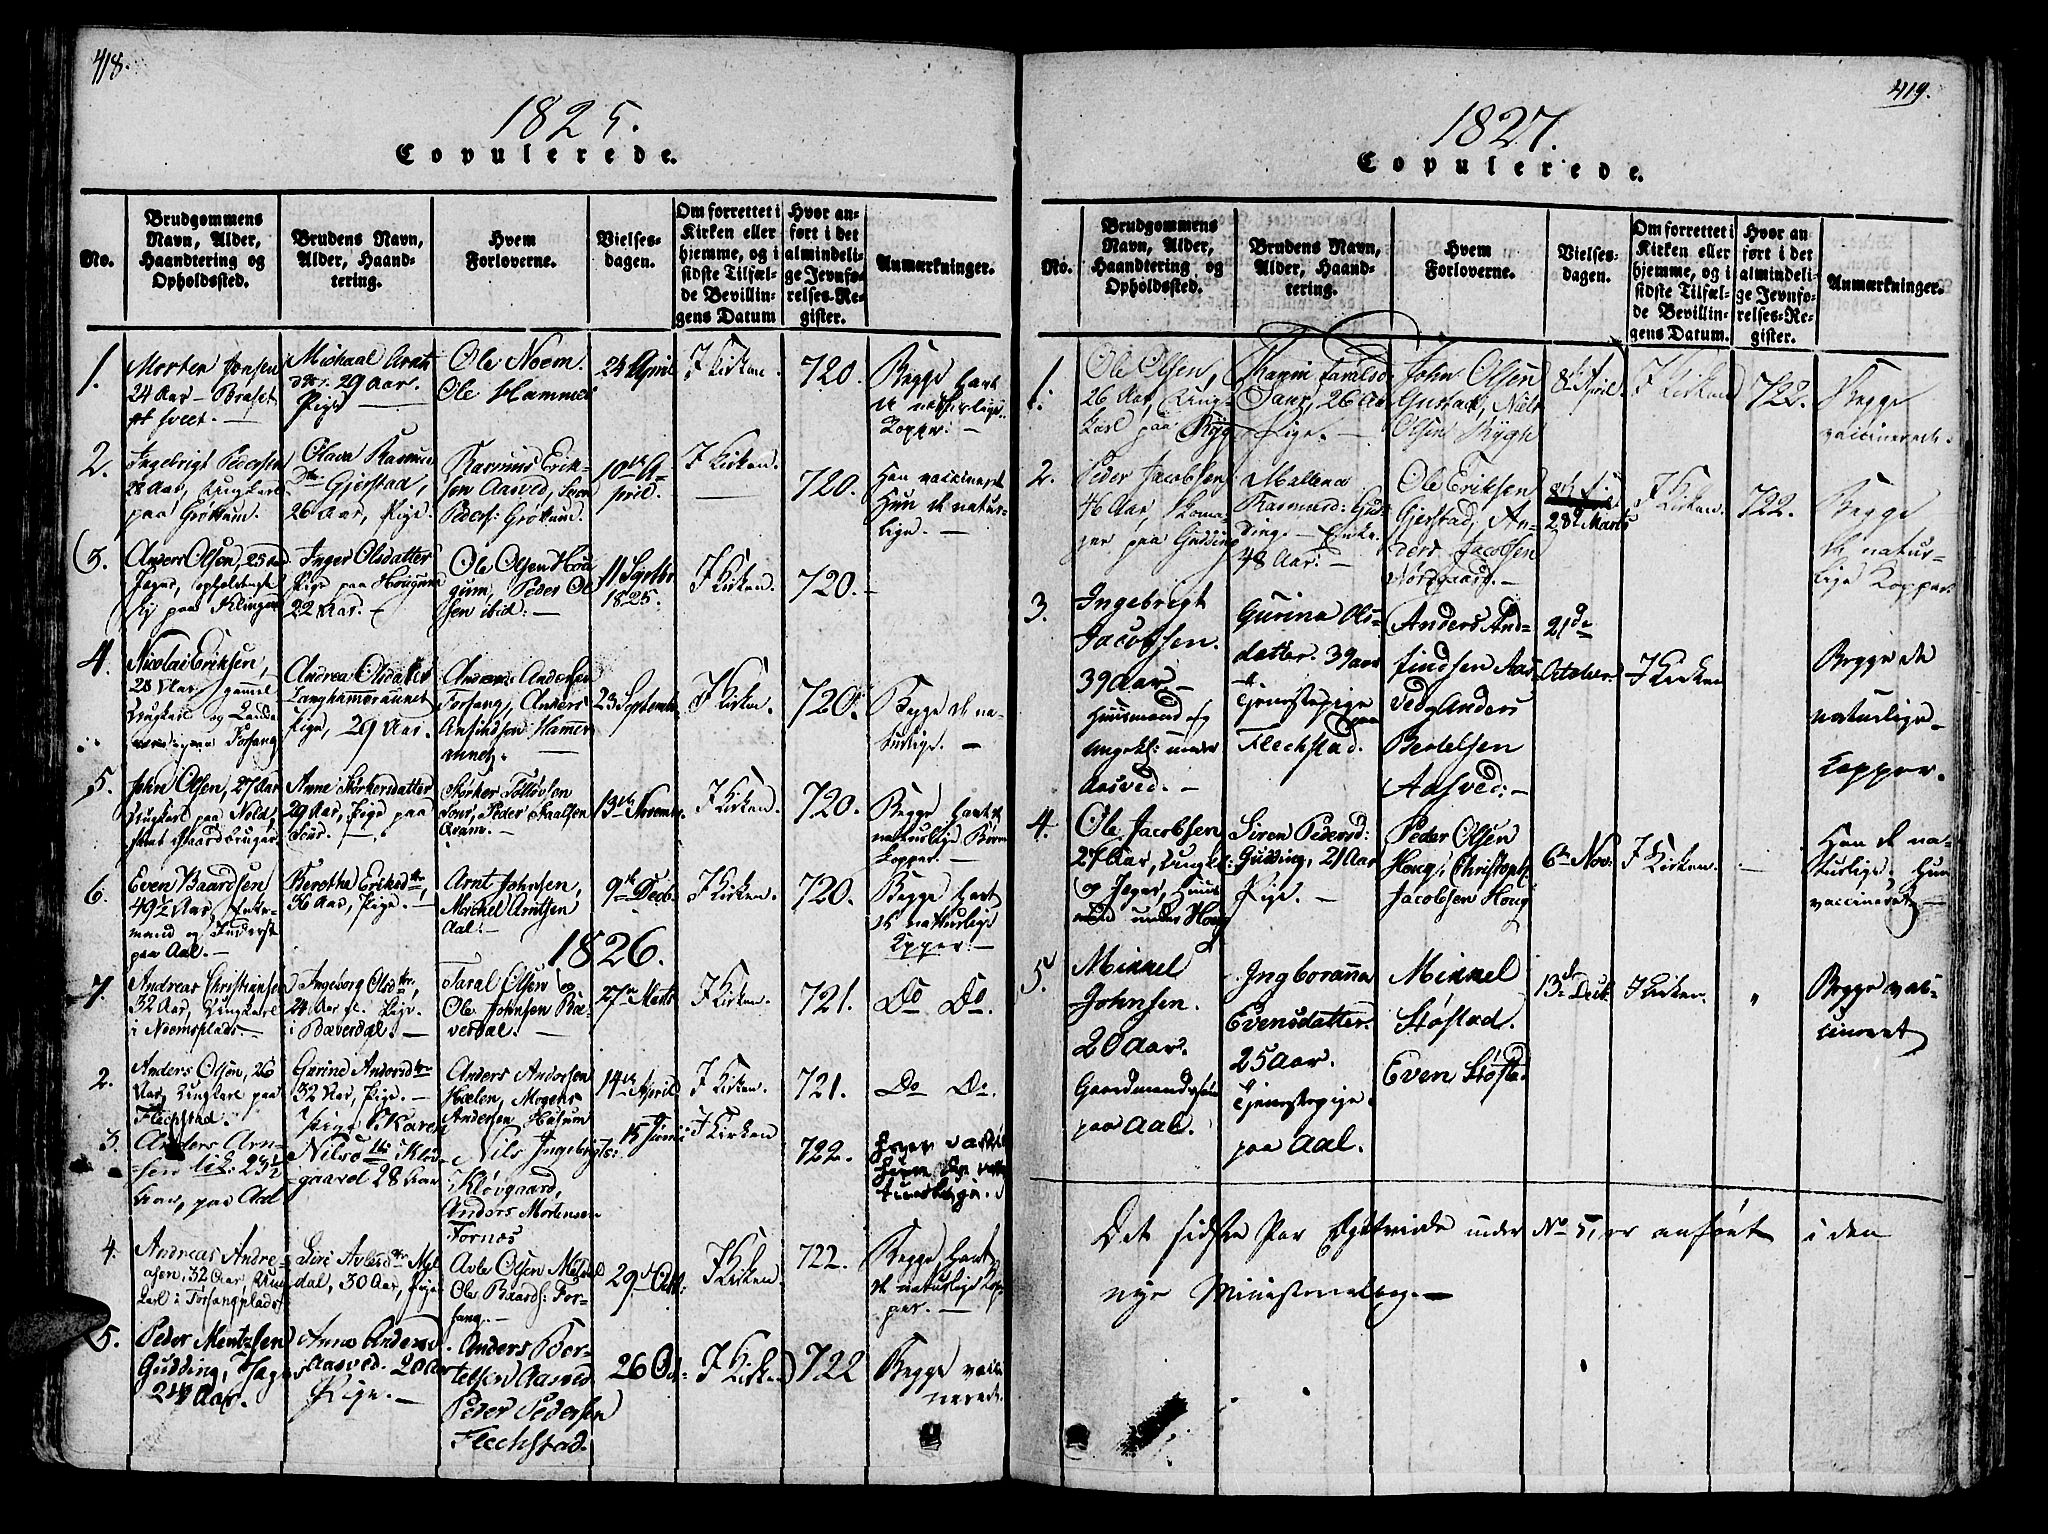 418.
1825.
Copulerede.
No.
Brudgommens
Navn, Alder,
Haandtering og
Opholdssted.
Brudens Navn,
Alder, Haand-
tering.
Hvem
Forloverne.
Vielses-
dagen.
Om forrettet i
Kirken eller
hjemme, og i
sidste Tilfæl-
de Bevillin-
gens Datum
Hvor an-
ført i det
almindeli-
ge Jevnfø-
relses-Re-
gister.
Anmærkninger.
1.
Morten Jonsen
24 Aar - Braset
Michaal Arnt
29 aar.
Pige
Ole Noem.
Ole Hammer
24 April
I Kirken.
720.
Begge havt
de naturlige
Kopper. -
2.
Ingebrigt Pedersen
28 Aar, Ungkarl
paa Grøttum.
Olava Rasmus
Dtr Gjerstad,
26 Aar, Pige.
Rasmus Erik-
sen Aasved, Sivert
Peders: Grøttum.
10de A-
pril.
I Kirken.
720.
Han vaccineret
Hun de natur-
lige. -
3.
Anders Olsen, 25 Aar
Jæger, opholdende
sig paa Klingen
Inger Olsdatter
Pige paa Hougum
22 Aar. -
Ole Olsen Hou
gum, Peder Ol
sen ibid: -
11 Septbr
1825.
I Kirken.
720.
4.
Nicolai Eriksen,
28 Aar, gammel
Ungkarl og Lands
paa Forsang
Andrea Olsdatter
Langhammeraunet
Pige, 29 Aar.
Anders Andersen
Forsang, Anders
Anfindsen Hammer
aunet.
23 Septembr
I Kirken.
720.
Begge de na-
turlige. -
5.
John Olsen, 27 Aar
Ungkarl paa Nold,
samt Gaardbruger
Anne Størkersdatter
29 Aar, Pige paa
Sour. -
Størker Tolløvsen
Sour, Peder Paalsen
Qvam. -
13de Novemb.
I Kirken.
720.
Begge havt de
naturlige Børne
Kopper. -
6.
Even Baardsen
49½ Aar, Enke-
mand og Inderst
paa Aal. -
Berethe Eriksdtr,
36 Aar, Pige. -
Arnt Johnsen,
Mickel Arntsen
Aal. -
9de Decb.
I Kirken.
720.
Begge havt
de naturlige
Kopper. -
1826.
1.
Andreas Christiansen
32 Aar, Ungkarl
i Noemsplads. -
Ingeborg Olsdtr,
24 Aar gl. Pige.
i Bæverdal. -
Taral Olsen og
Ole Johnsen Bæ-
verdal. -
27de Marts
I Kirken.
721.
Do Do.
2.
Anders Olsen, 26
Aar, Ungkarl paa
Flechstad.
Gurind Andersdtr
32 Aar, Pige. -
Anders Andersen
Hoelen, Mogens
Andersen Hafsum
14de April
I Kirken.
721.
Do Do.
3.
Anders Arn-
sen lik: 23½
Aar, paa Aal
Pige Karen
Nilsdtr Kløv-
gaard 28 Aar
Nils Ingebrigts:
Kløvgaard,
Anders Mortensen
Fornes
15 Juni
I Kirken
722.
4.
Andreas Andre-
asen, 32 Aar, Ung
karl i Forsangplads
Siri Avlesdtr Mel
dal, 30 Aar, Pige
Avle Olsen Meldal
Ole Baards: For-
sang. -
29de Octb.
I Kirken.
722.
Begge havt
de naturlige Kop-
per. -
5.
Peder Mentzsen
Gudding, Jæger
24 Aar.
Anne Andersd.
Aasved. 20 Aar
Pige. -
Anders Ber-
telsen Aasved.
Peder Pedersen
Flechstad.
26 Oct.
I Kirken
722
Begge vacci
nerede.
419.
1827.
Copulerede.
No.
Brudgommens
Navn, Alder,
Haandtering og
Opholdssted.
Brudens Navn,
Alder, Haand-
tering.
Hvem
Forloverne.
Vielses-
dagen.
Om forrettet i
Kirken eller
hjemme, og i
sidste Tilfæl-
de Bevillin-
gens Datum.
Hvor an
ført i det
almindeli-
ge Jevnfø-
relses-Re-
gister.
Anmærkninger.
1.
Ole Olsen,
26 Aar, Ung-
karl paa Rygg
Karin Taralsd.
Saur, 26 Aar
Pige. -
John Olsen
Gustad, Niels
Olsen Rygh
8de April.
I Kirken
722.
Begge
vaccinerede.
2.
Peder Jacobsen
46 Aar, Skoma-
ger paa Gudding
Mallena
Rasmusd: Gud-
ding - Enke.
48 Aar: -
Ole Eriksen
Gjerstad, An-
ders Jacobsen
Nordgaard. -
28de Marts
I Kirken.
722.
Begge
de natur-
lige Kopper.
3.
Ingebrigt
Jacobsen.
39 Aar -
Huusmand og
Ungekl: under
Aasved. -
Gurina Ols-
datter. 39 aar
Tjenestepige
paa
Flechstad.
Anders And-
findsen Aas-
ved, Anders
Bertelsen
Aasved: -
21de
October.
I Kirken
Begge de
naturlige-
Kopper.
4.
Ole Jacobsen
27 Aar, Ungkl:
og Jæger, Huus
mand under Houg
Siren Pedersd:
Gudding, 21 Aar
Pige. -
Peder Olsen
Houg, Christoph:
Jacobsen Houg
6te Nov.
I Kirken.
-
Han de na-
turlige. Hun
vaccineret -
5.
Mikkel
Johnsen.
20 Aar.
Gaardmandssøn
paa Aal.
Ingboranna
Evensdatter.
25 Aar.
Tjenestepige.
paa Aal.
Mikkel
Støstad.
Even Støstad
13de Decb
I Kirken.
"
Begge vac-
cineret
Det sidste Par Egtviede under No 5, er anført i den
nye Ministerialbog. -